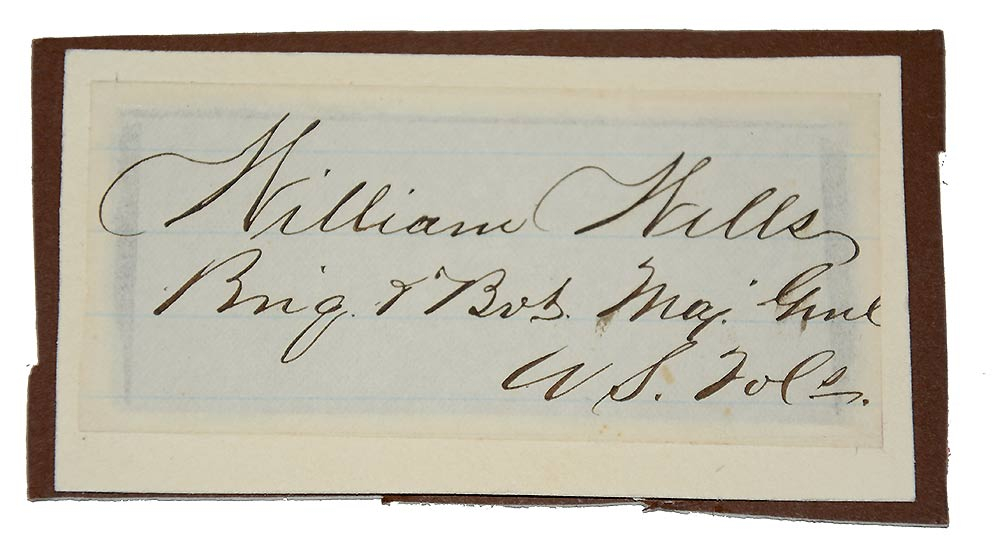 William Wells
Brig. & Bvt. Maj. Genl
U S. Vols.